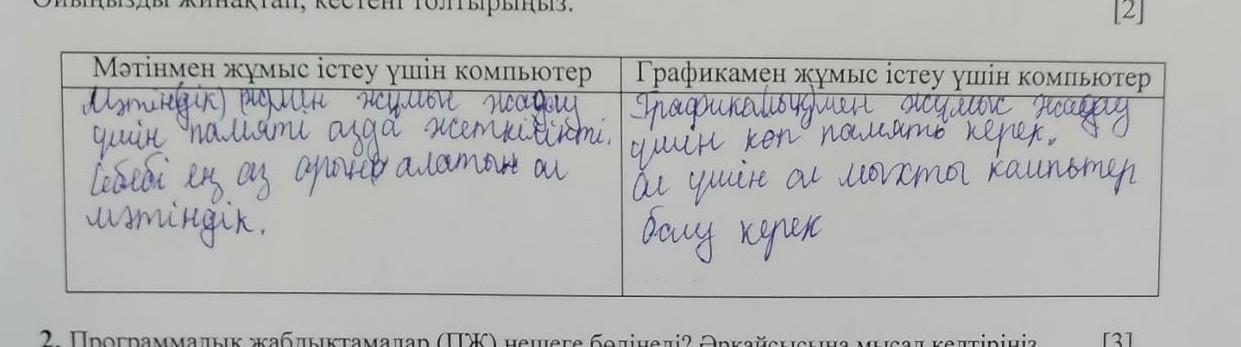 Ойыңызды жинақтап, кестені толтырыңыз.
[2]
Мәтінмен жұмыс істеу үшін компьютер
Графикамен жұмыс істеу үшін компьютер
Мәтіндік) жұмыс жасау
үшін памяти азда жеткілікті.
Себебі ең аз орын алатын ол
мәтіндік.
Графикалық)мен жұмыс жасау
үшін көп память керек.
ол үшін ол мықты компьтер
болу керек
2. Программалық жабдықтамалар (ПЖ) нешеге бөлінеді? Әрқайсысына мысал келтіріңіз.
[3]